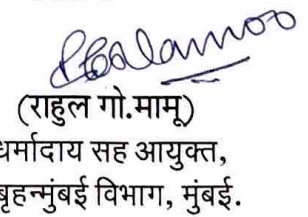 (राहुल गो.मामू)
धर्मादाय सह आयुक्त,
बृहन्मुंबई विभाग, मुंबई.